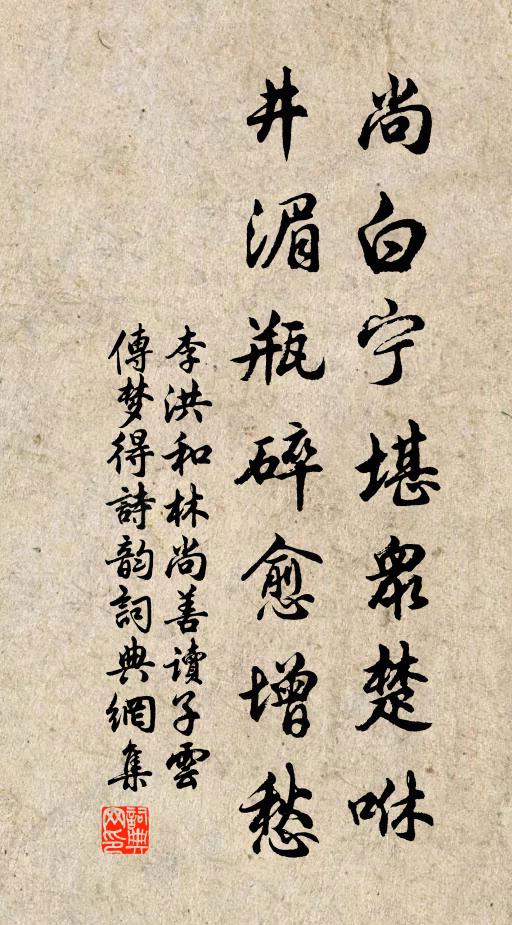 尚白宁堪衆楚咻
井湄瓶碎愈增愁
李洪和林尚善讀子雲
傳梦得詩韵詞典網集
詞典网印